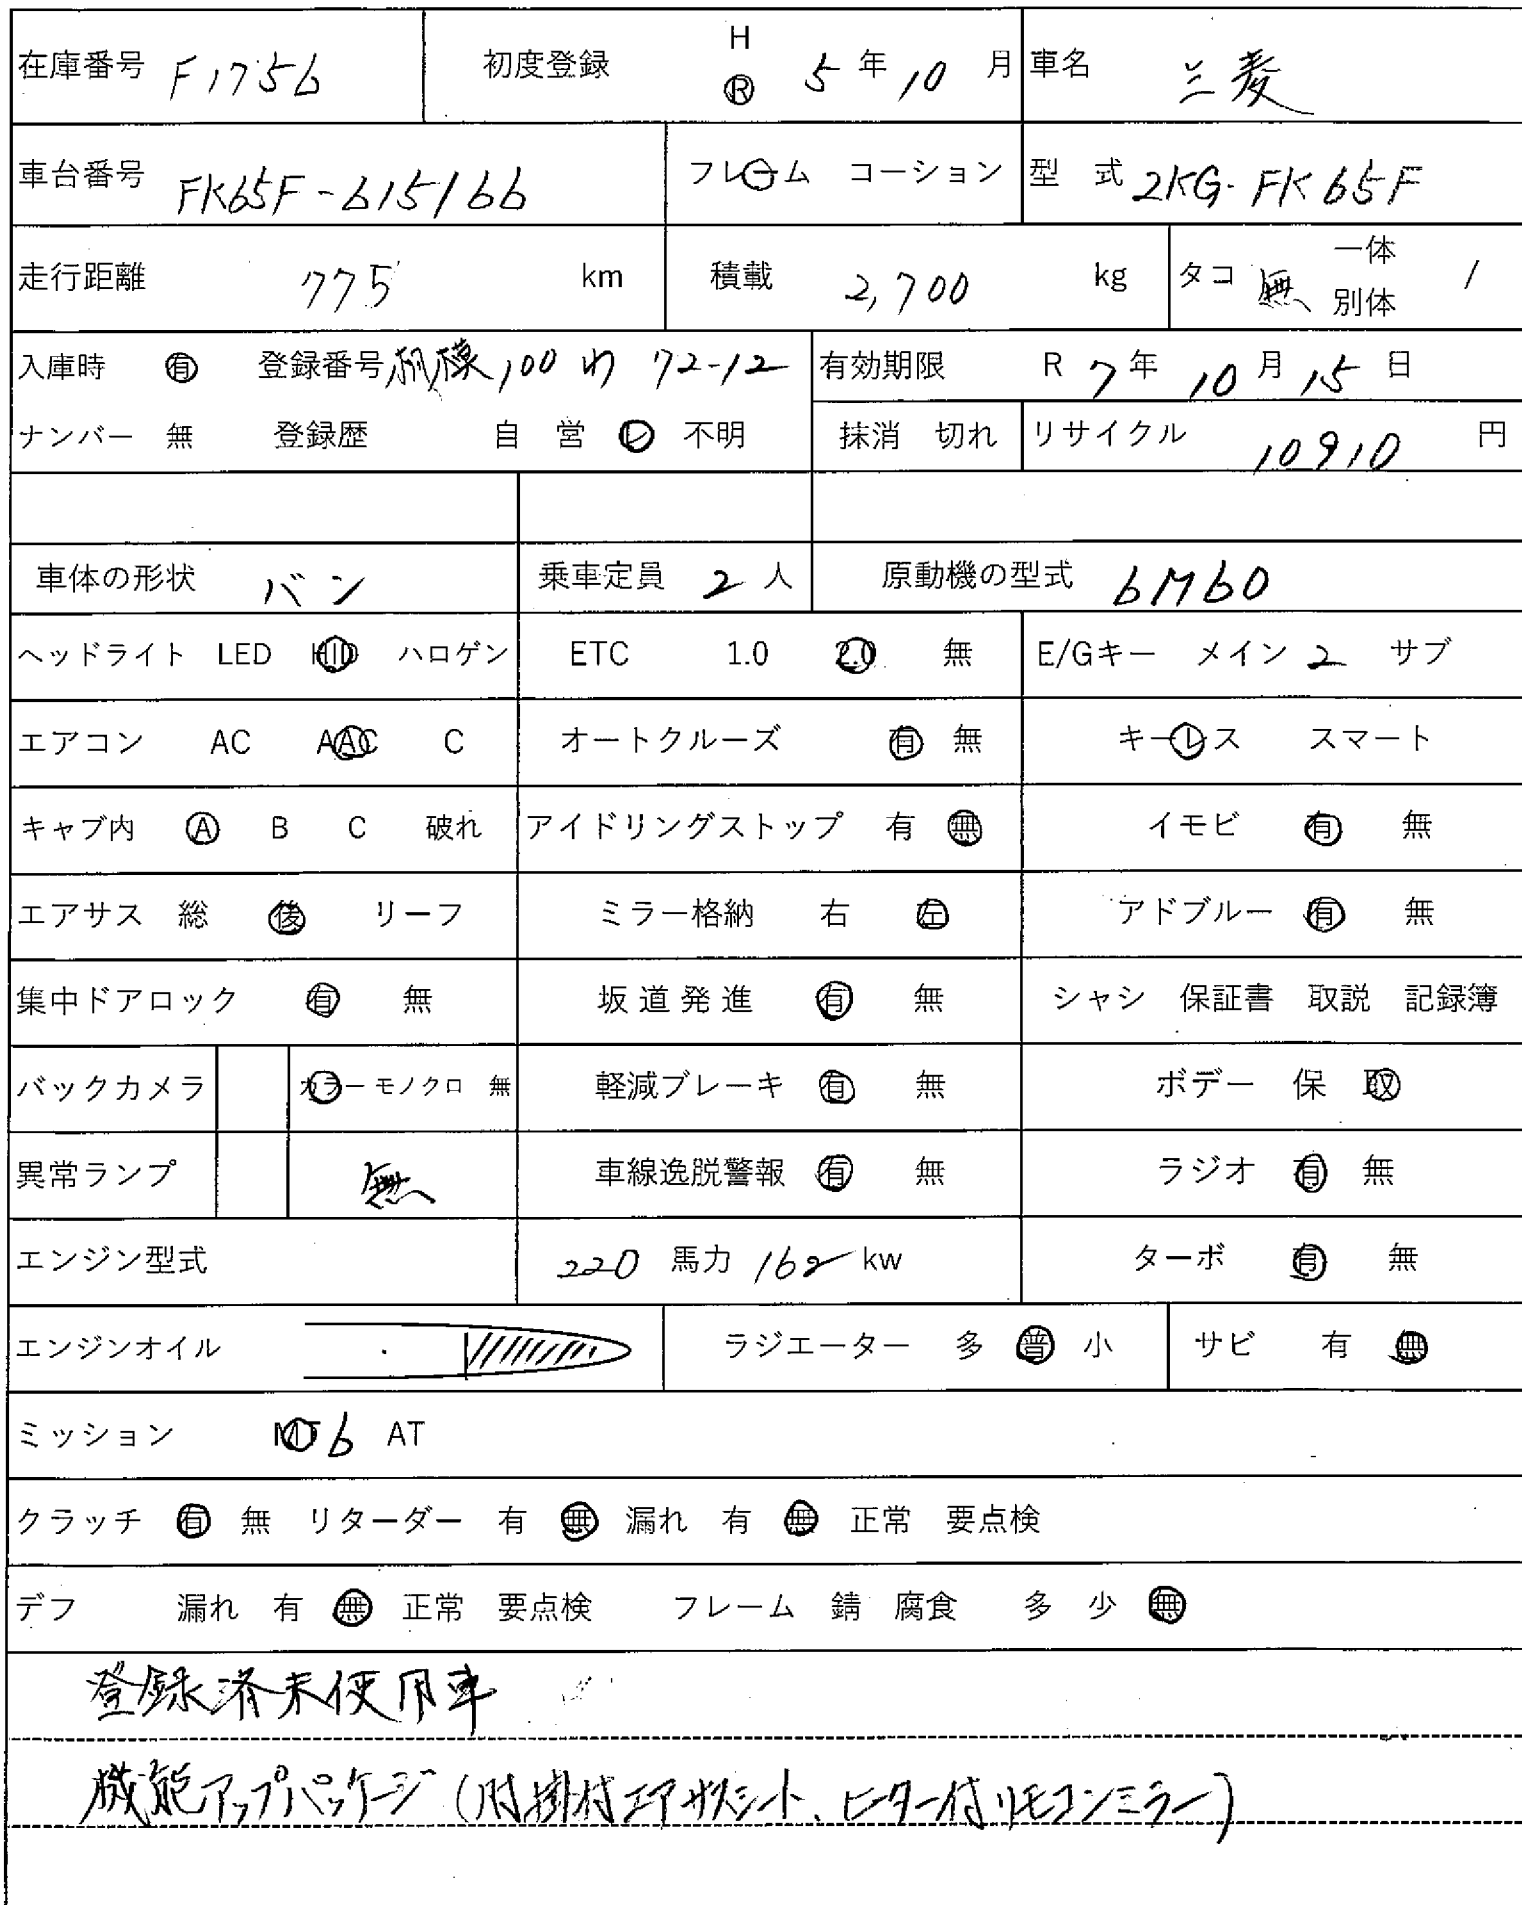 在庫番号 F1756 初度登録 H Ⓡ 5 年 10 月 車名 三菱
車台番号 FK65F-615166 フレーム コーション 型 式 2KG-FK65F
走行距離 775 km 積載 2,700 kg タコ 無 一体 別体 /
入庫時 有 登録番号 相模 100 わ 72-12 有効期限 R 7 年 10 月 15 日
ナンバー 無 登録歴 自 営 レ 不明 抹消 切れ リサイクル 10910 円
車体の形状 バン 乗車定員 2 人 原動機の型式 6M60
ヘッドライト LED HID ハロゲン ETC 1.0 2.0 無 E/Gキー メイン 2 サブ
エアコン AC AAC C オートクルーズ 有 無 キーレス スマート
キャブ内 A B C 破れ アイドリングストップ 有 無 イモビ 有 無
エアサス 総 後 リーフ ミラー格納 右 左 アドブルー 有 無
集中ドアロック 有 無 坂道発進 有 無 シャシ 保証書 取説 記録簿
バックカメラ カラー モノクロ 無 軽減ブレーキ 有 無 ボデー 保 取
異常ランプ 無 車線逸脱警報 有 無 ラジオ 有 無
エンジン型式 220 馬力 162 kw ターボ 有 無
エンジンオイル ラジエーター 多 普 小 サビ 有 無
ミッション MT 6 AT
クラッチ 有 無 リターダー 有 無 漏れ 有 無 正常 要点検
デフ 漏れ 有 無 正常 要点検 フレーム 錆 腐食 多 少 無
登録済未使用車
機能アップパッケージ(肘掛付エアサスシート、ヒーター付リモコンミラー)